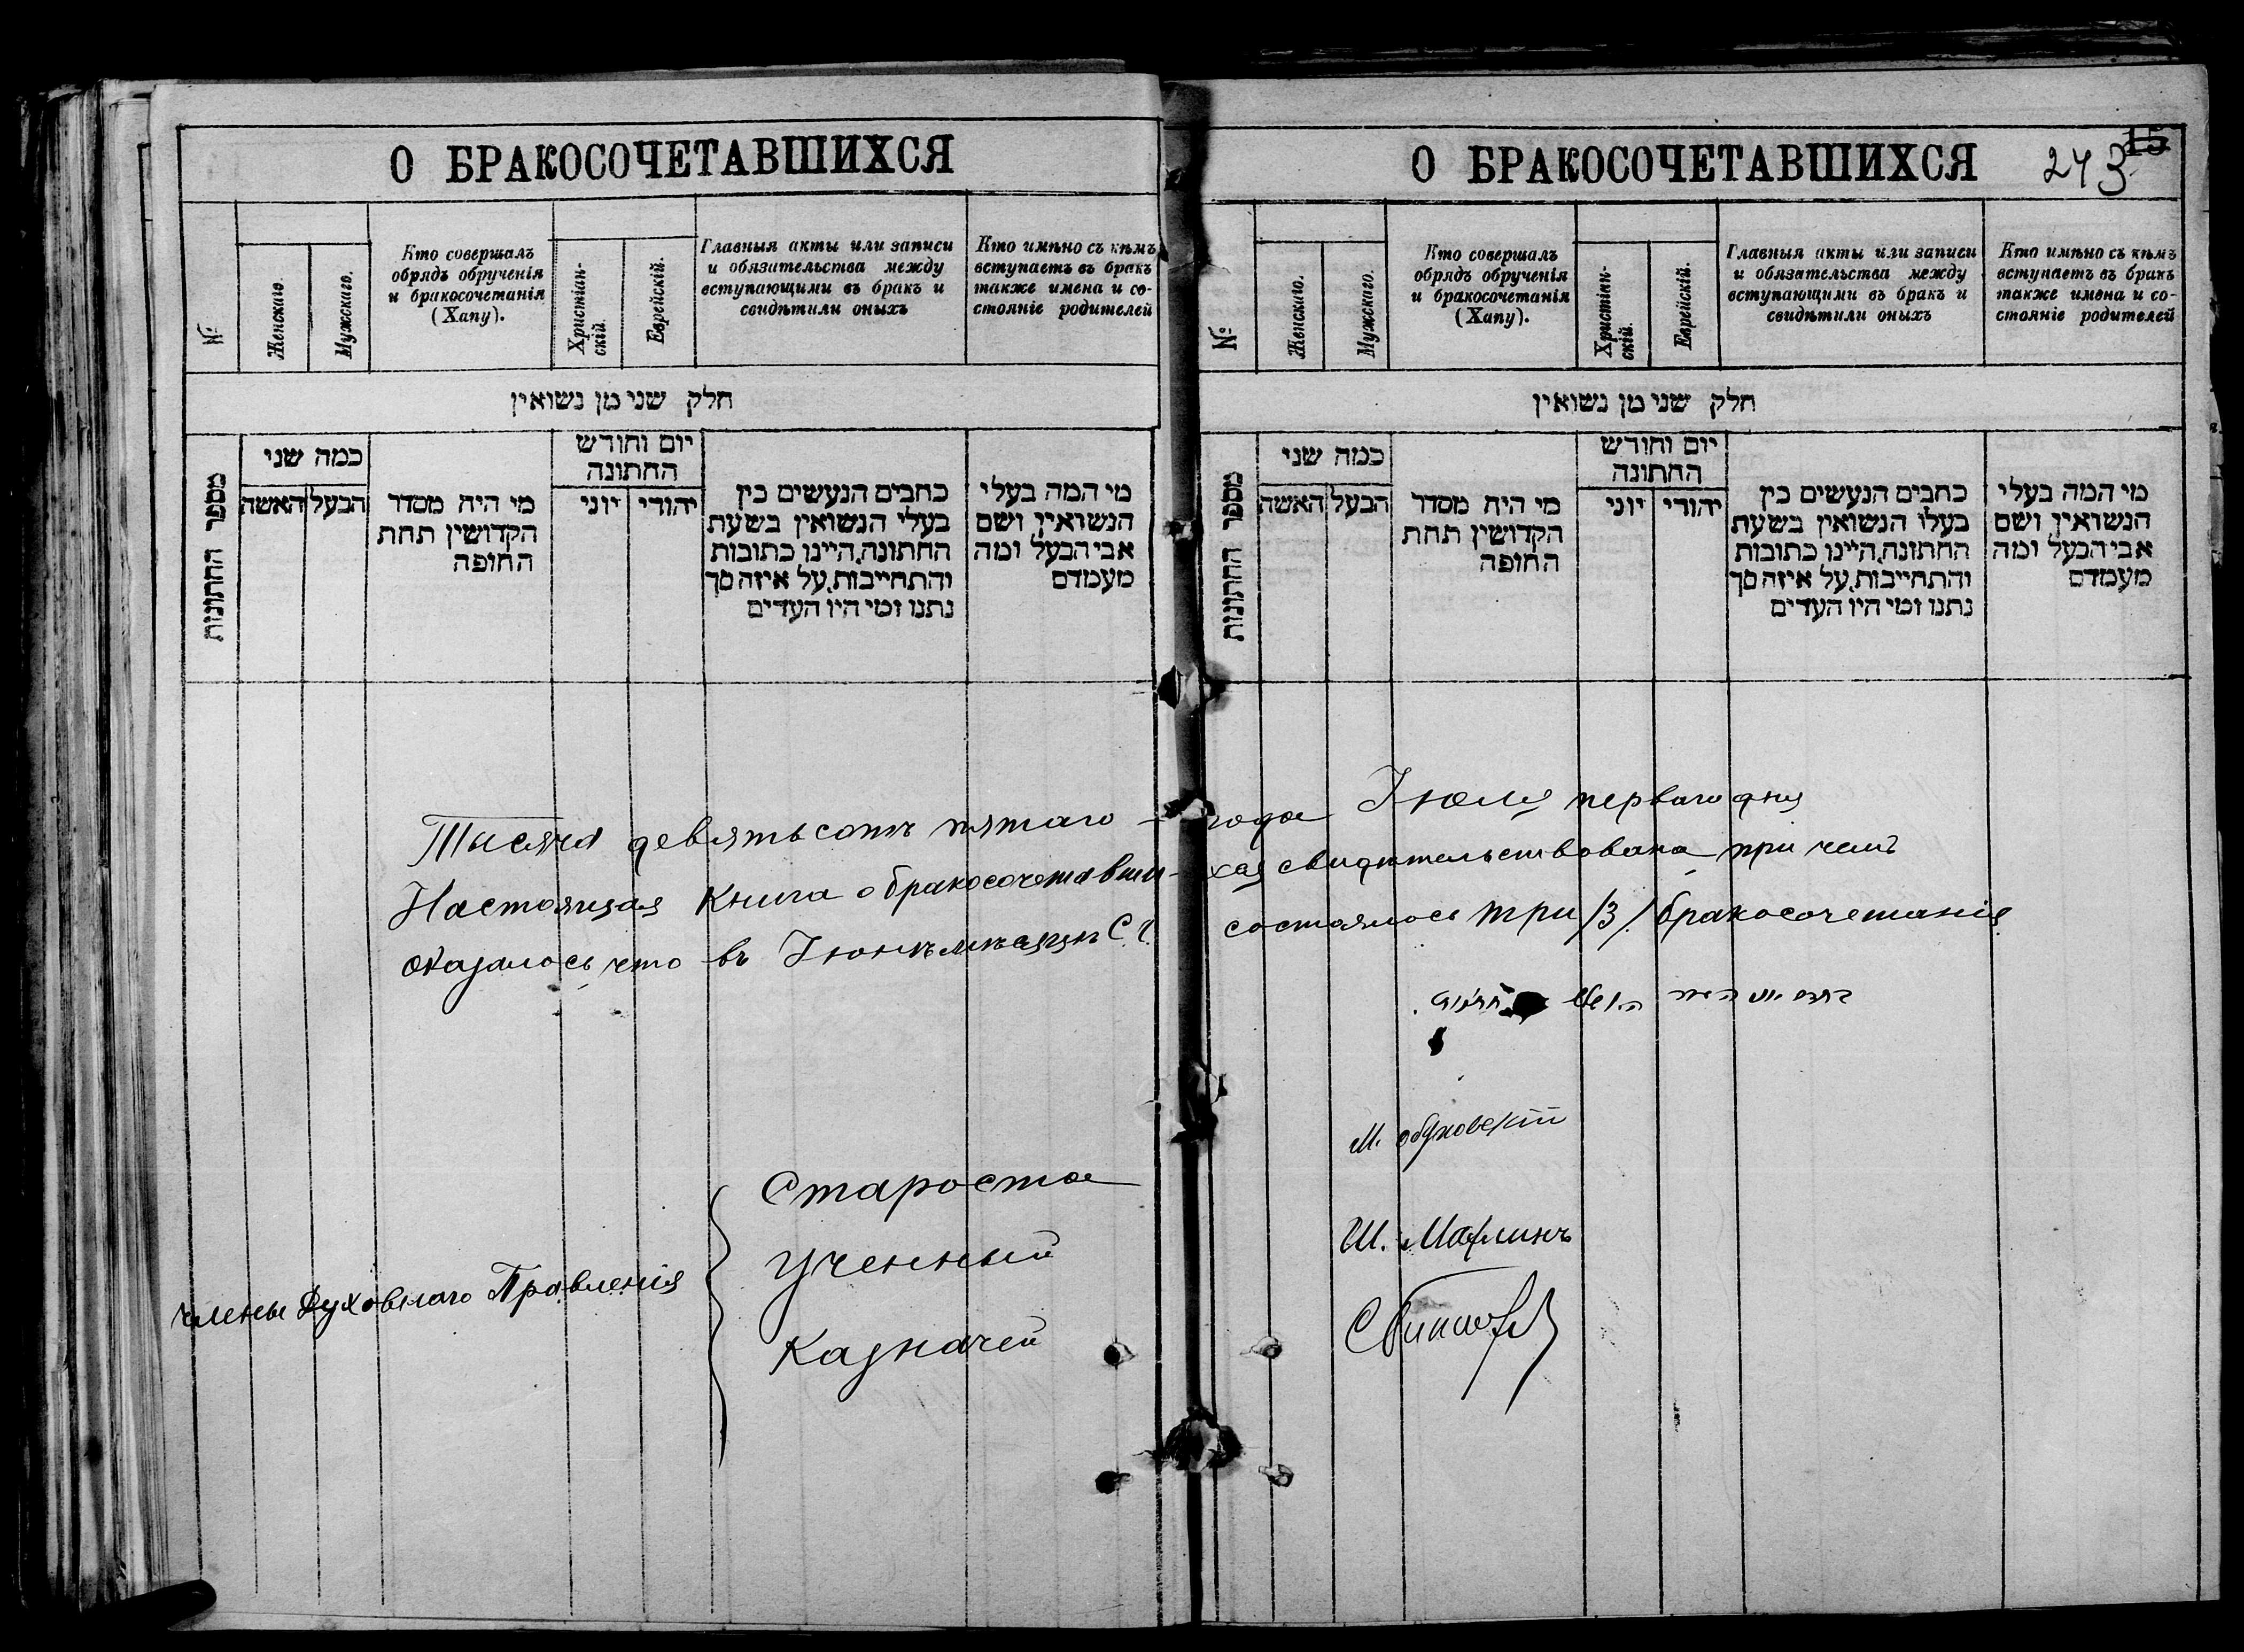 О БРАКОСОЧЕТАВШИХСЯ
№
Женскаго.
Мужскаго.
Кто совершалъ
обрядъ обрученія
и бракосочетанія
(Хапу).
Христіан-
скій.
Еврейскій.
Главныя акты или записи
и обязательства между
вступающими въ бракъ и
свидѣтили оныхъ
Кто имѣно съ кѣмъ
вступаетъ въ бракъ
также имена и со-
стояніе родителей
חלק שני מן נשואין
מספר החתונות
כמה שני
האשה
הבעל
מי היה מסדר
הקדושין תחת
החופה
יום וחודש
החתונה
יוני
יהודי
כתבים הנעשים בין
בעלי הנשואין בשעת
החתונה, היינו כתובות
והתחייבות, על איזה סך
נתנו ומי היו העדים
מי המה בעלי
הנשואין ושם
אבי הבעל ומה
מעמדם
Тысяча девятьсотъ пятаго —
Настоящая Книга о бракосочетавши-
оказалось что въ Іюнѣ мѣсяцѣ С. г.
Члены Духовнаго Правленія
Староста
Ученный
Казначей
О БРАКОСОЧЕТАВШИХСЯ
15
243
№
Женскаго.
Мужскаго.
Кто совершалъ
обрядъ обрученія
и бракосочетанія
(Хапу).
Христіан-
скій.
Еврейскій.
Главныя акты или записи
и обязательства между
вступающими въ бракъ и
свидѣтили оныхъ
Кто имѣно съ кѣмъ
вступаетъ въ бракъ
также имена и со-
стояніе родителей
חלק שני מן נשואין
מספר החתונות
כמה שני
האשה
הבעל
מי היה מסדר
הקדושין תחת
החופה
יום וחודש
החתונה
יוני
יהודי
כתבים הנעשים בין
בעלי הנשואין בשעת
החתונה, היינו כתובות
והתחייבות, על איזה סך
נתנו ומי היו העדים
מי המה בעלי
הנשואין ושם
אבי הבעל ומה
מעמדם
года Іюля перваго дня
хся свидѣтельствована при чемъ
состоялось три /3/ бракосочетанія
М. Обуховскій
Ш.